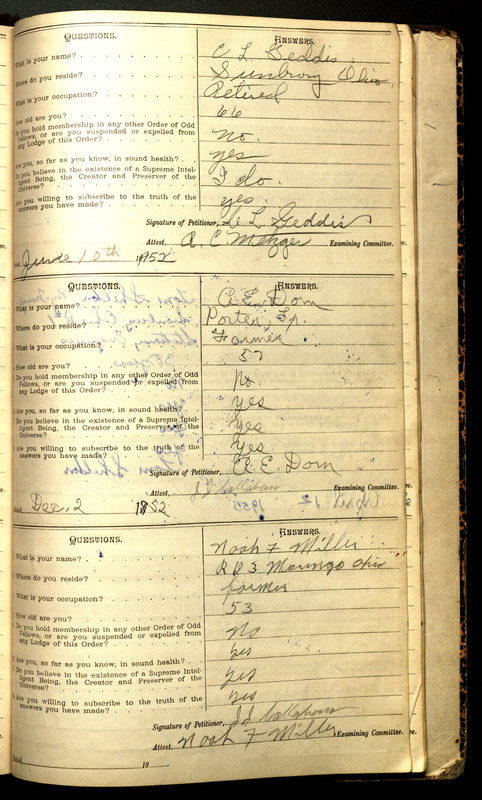 QUESTIONS. ANSWERS.
What is your name? C L Geddis
Where do you reside? Sunbury Ohio
What is your occupation? Retired
How old are you? 66
Do you hold membership in any other Order of Odd
Fellows, or are you suspended or expelled from
any Lodge of this Order? no.
Are you, so far as you know, in sound health? yes
Do you believe in the existence of a Supreme Intel-
ligent Being, the Creator and Preserver of the
Universe? I do.
Are you willing to subscribe to the truth of the
answers you have made? yes
Signature of Petitioner, C L Geddis
Attest, A. C. Metzger Examining Committee.
June 10th 1952
QUESTIONS. ANSWERS.
What is your name? A. E. Dorn
Where do you reside? Porter, Tp.
What is your occupation? Farmer
How old are you? 57
Do you hold membership in any other Order of Odd
Fellows, or are you suspended or expelled from
any Lodge of this Order? no
Are you, so far as you know, in sound health? yes
Do you believe in the existence of a Supreme Intel-
ligent Being, the Creator and Preserver of the
Universe? yes
Are you willing to subscribe to the truth of the
answers you have made? Yes
Signature of Petitioner, A. E. Dorn
Attest, J J Callahan Examining Committee.
Dated Dec. 2 1952
QUESTIONS. ANSWERS.
What is your name? Noah F Miller
Where do you reside? R D 3 Marengo Ohio
What is your occupation? farmer
How old are you? 53
Do you hold membership in any other Order of Odd
Fellows, or are you suspended or expelled from
any Lodge of this Order? no
Are you, so far as you know, in sound health? yes
Do you believe in the existence of a Supreme Intel-
ligent Being, the Creator and Preserver of the
Universe? yes
Are you willing to subscribe to the truth of the
answers you have made? yes
Signature of Petitioner, J J Callahan
Attest, Noah F Miller Examining Committee.
Dated 18